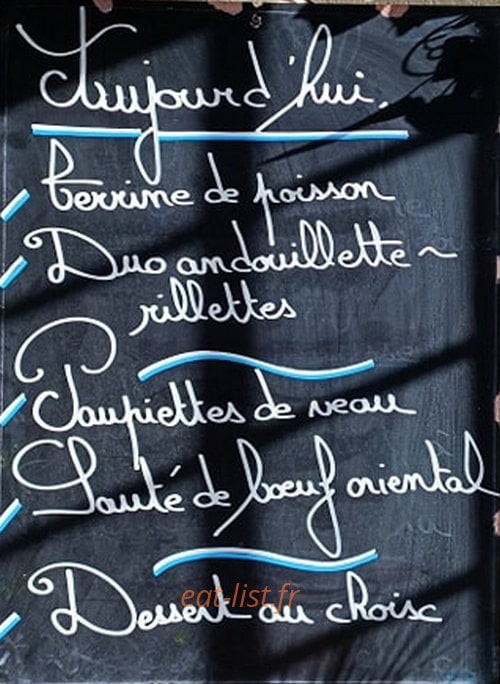 Aujourd'hui.
Terrine de poisson
Duo andouillette ~
rillettes
Paupiettes de veau
Sauté de boeuf oriental
Dessert au choix
eat-list.fr